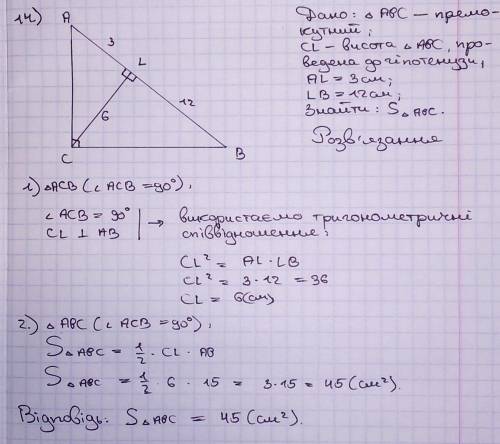 14)
A
3
L
12
6
C
B
Дано: △ ABC — прямо-
кутний;
CL - висота △ ABC, про-
ведена до гіпотенузи,
AL = 3 см;
LB = 12 см;
Знайти: S△ ABC.
Розв'язання
1) △ACB (∠ ACB = 90°),
∠ ACB = 90°
CL ⊥ AB
→ використаємо тригонометричні
співвідношення:
CL² = AL · LB
CL² = 3 · 12 = 36
CL = 6(см)
2.) △ ABC (∠ ACB = 90°),
S△ ABC = 1/2 · CL · AB
S△ ABC = 1/2 · 6 · 15 = 3·15 = 45 (см²).
Відповідь: S△ ABC = 45 (см²).